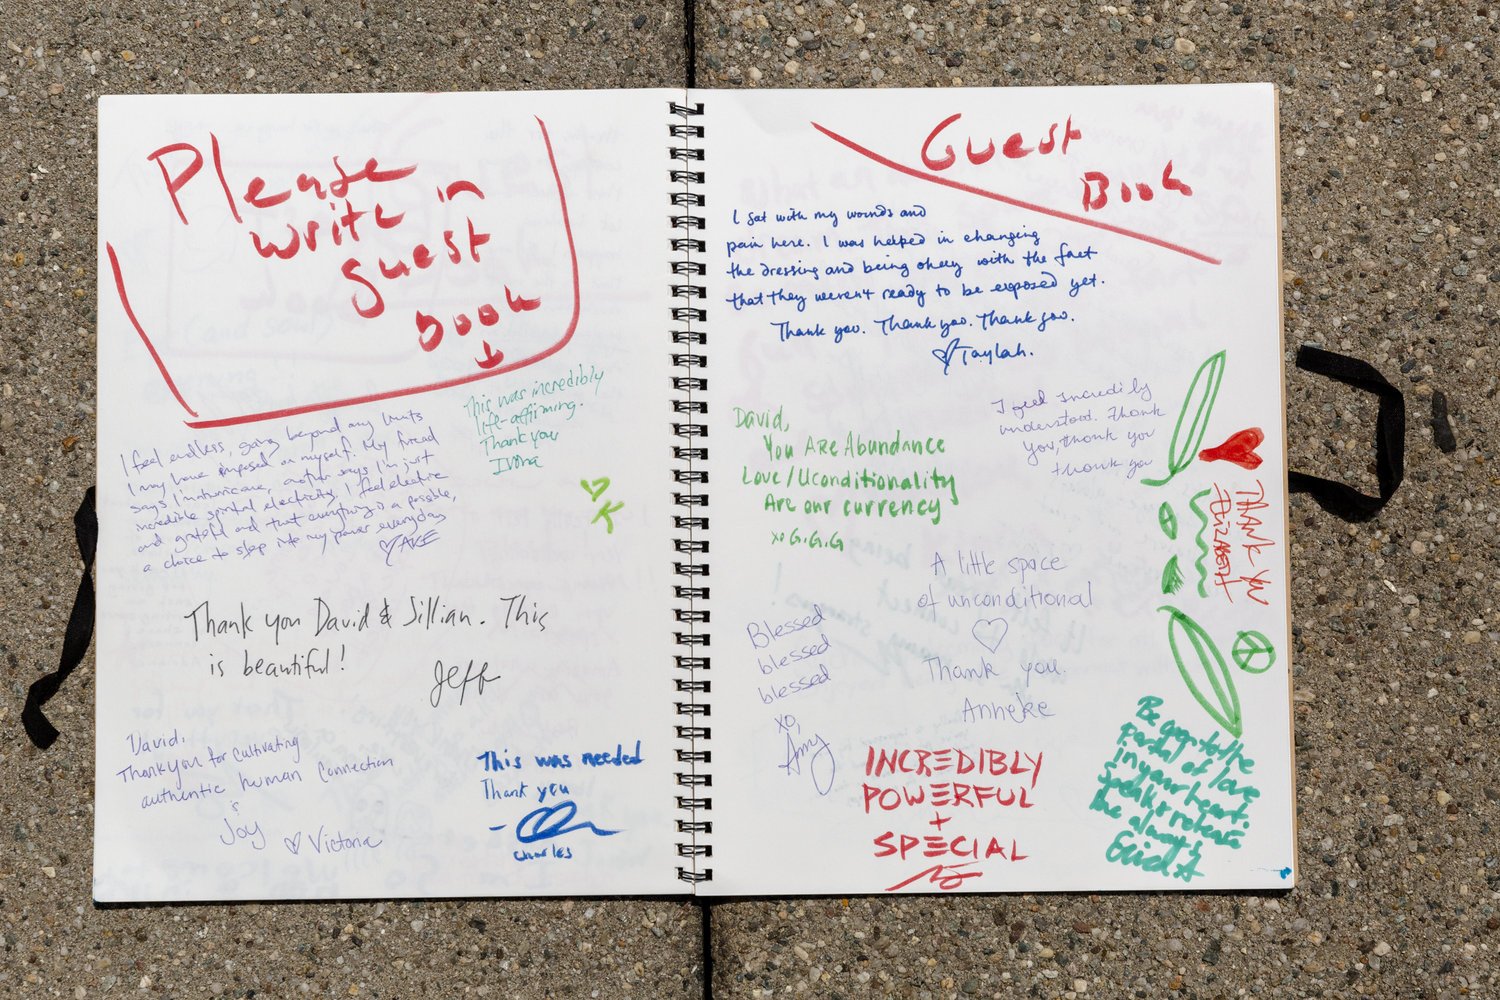 Please
write in
guest
book
This was incredibly
life-affirming.
Thank you
Ivona
I feel endless, going beyond any limits
I may have imposed on myself. My friend
says I'm hurricane, another says I'm just
incredible spiritual electricity. I feel electric
and grateful and that everything is a possible,
a choice to step into my power everyday
K
Thank you David & Jillian. This
is beautiful!
Jeff
David,
Thank you for cultivating
authentic human connection
&
Joy
Victoria
This was needed
Thank you
Charles
Guest
Book
I sat with my wounds and
pain here. I was helped in changing
the dressing and being okay with the fact
that they weren't ready to be exposed yet.
Thank you. Thank you. Thank you.
Taylah.
David,
You Are Abundance
Love/Uconditionality
Are our currency
xo G.G.G
I feel incredibly
understood. Thank
you, thank you
thank you
THANK YOU
ElizABETH
A little space
of unconditional
Thank you.
Anneke
Blessed
blessed
blessed
xo,
Amy
INCREDIBLY
POWERFUL
+
SPECIAL
Be open to the
portal of love
in your heart.
Speak & release
the always